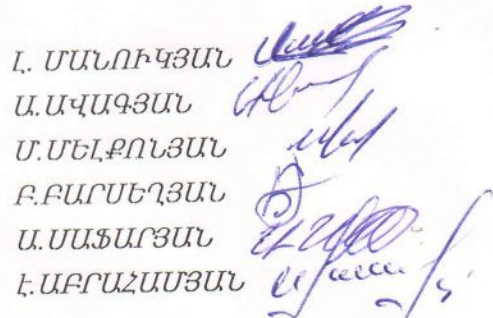 Լ. ՄԱՆՈՒԿՅԱՆ
Ա.ԱՎԱԳՅԱՆ
Մ.ՄԵԼՔՈՆՅԱՆ
Բ.ԲԱՐՍԵՂՅԱՆ
Ա.ՍԱՖԱՐՅԱՆ
Է.ԱԲՐԱՀԱՄՅԱՆ